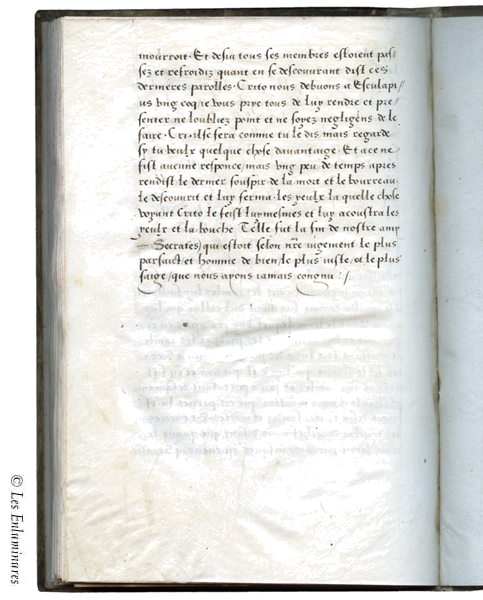 mourroit. Et desia tous ses membres estoient pas/
sez et refroidiz quant en se descouurant dist ces
dernieres parolles. Crito nous debuons a Esculapi/
us vng coq ie vous prye tous de luy rendre et pre/
senter ne loubliez point et ne soyez negligens de le
faire. Cri. Il se sera comme tu le dis mais regarde
sy tu veulx quelque chose dauantaige. Et a ce ne
fist aucune responce mais vng peu de temps apres
rendist le dernier souspir de la mort et le bourreau
le descouurit et luy ferma les yeulx la quelle chose
voyant Crito le feist luy mesmes et luy acoustra les
yeulx et la bouche Telle fut la fin de nostre amy
Socrates/ qui estoit selon nře iugement le plus
parfaict/ et homme de bien/ le plus iuste/ et le plus
saige/ que nous ayons iamais congnu : /.
© Les Enluminures